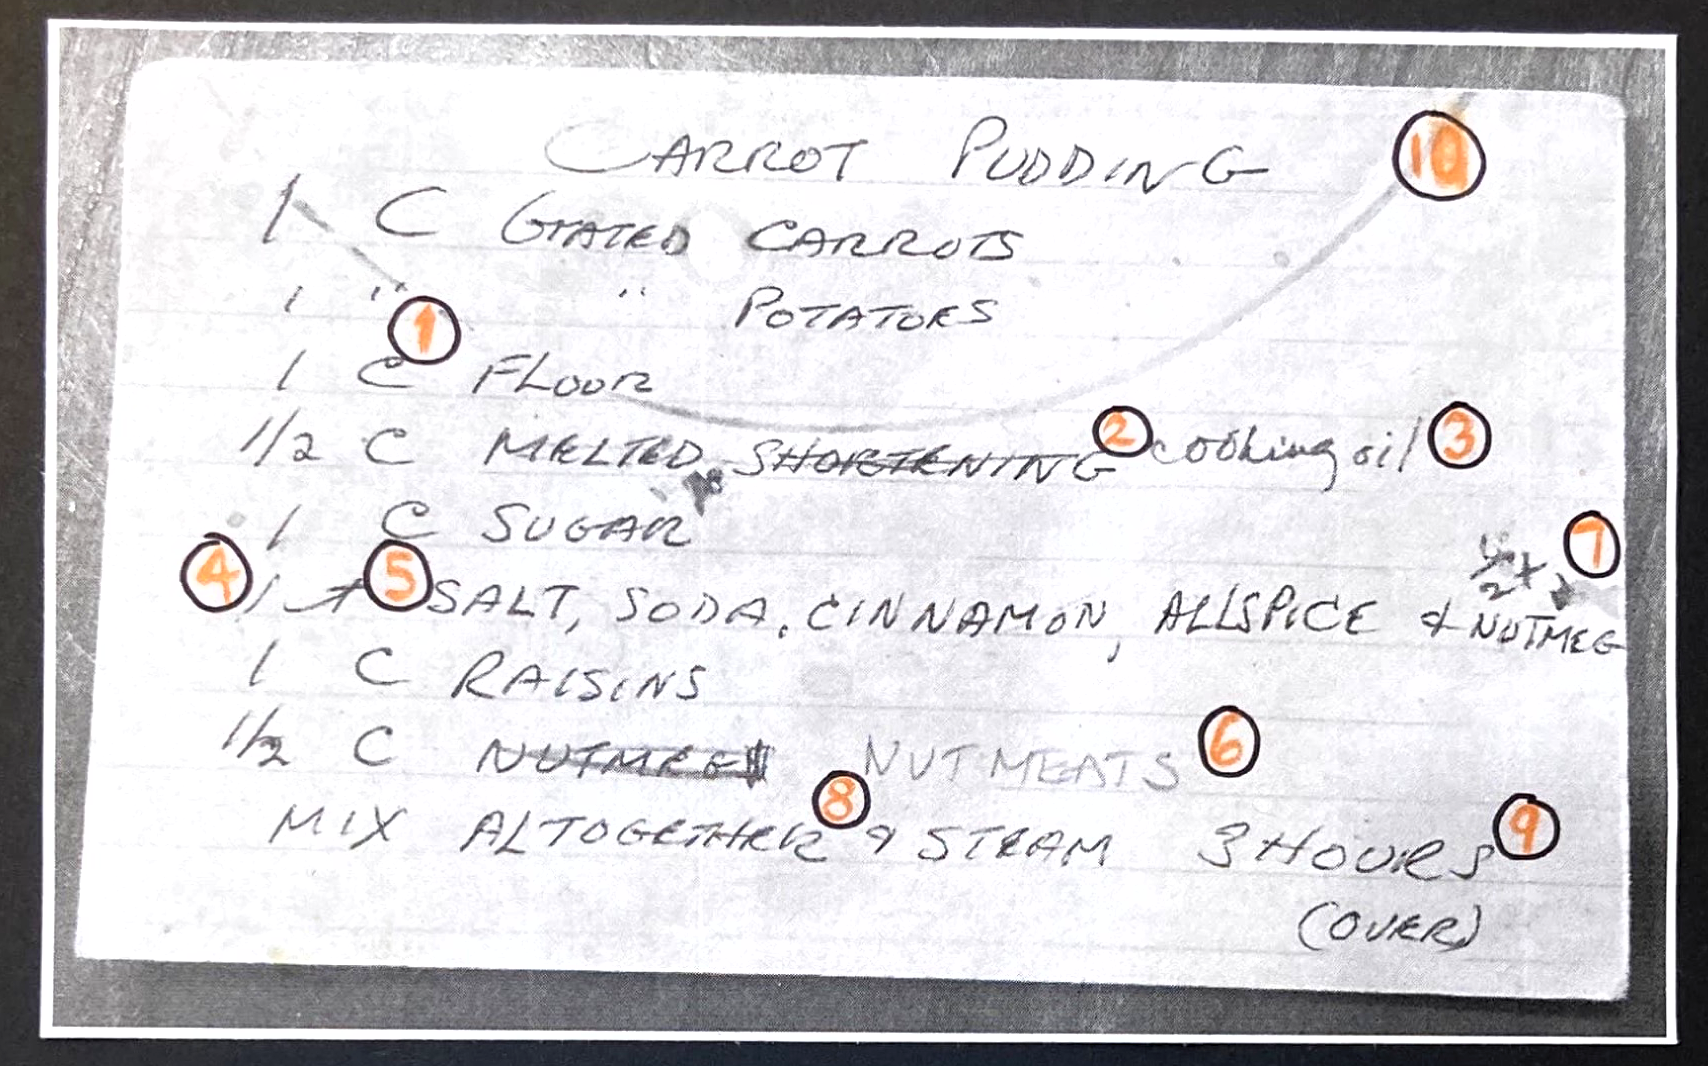 CARROT PUDDING 10
1 C GRATED CARROTS
1 " " POTATOES
1
1 C FLOOR
1/2 C MELTED SHORTENING 2 cooking oil 3
1 C SUGAR
4 1 t 5 SALT, SODA, CINNAMON, ALLSPICE & 1/2 t NUTMEG 7
1 C RAISINS
1/2 C NUTMEG NUTMEATS 6
MIX ALTOGETHER 8 & STEAM 3 HOURS 9
(OVER)